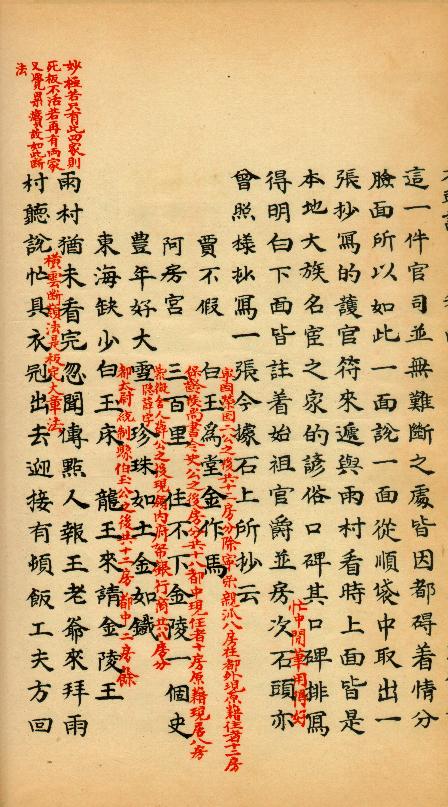 這一件官司並無難斷之處皆因都碍着情分
臉面所以如此一面說一面從順袋中取出一
張抄寫的護官符來遞與雨村看時上面皆是
本地大族名宦之家的諺俗口碑其口碑排寫
得明白下面皆註着始祖官爵並房次石頭亦
忙中閒筆用得好
曾照樣抄寫一張今據石上所抄云
賈不假 白玉為堂金作馬
寧國榮國二公之後共十二房分除寧榮親派八房在都外現原籍住者十二房
阿房宮 三百里 住不下金陵一個史
保齡侯尚書令史公之後房分共十八都中現住者十房原籍現居八房
豐年好大雪 珍珠如土金如鐵
隱薛字
紫薇舍人薛公之後現領內府帑銀行商共八房分
東海缺少白玉床 龍王來請金陵王
都太尉統制縣伯王公之後共十二房都中二房餘
雨村猶未看完忽聞傳點人報王老爺來拜雨
橫雲斷嶺法是板定大章法
村聽說忙具衣冠出去迎接有頓飯工夫方回
妙極若只有此四家則
死板不活若再有兩家
又覺累贅故如此斷
法